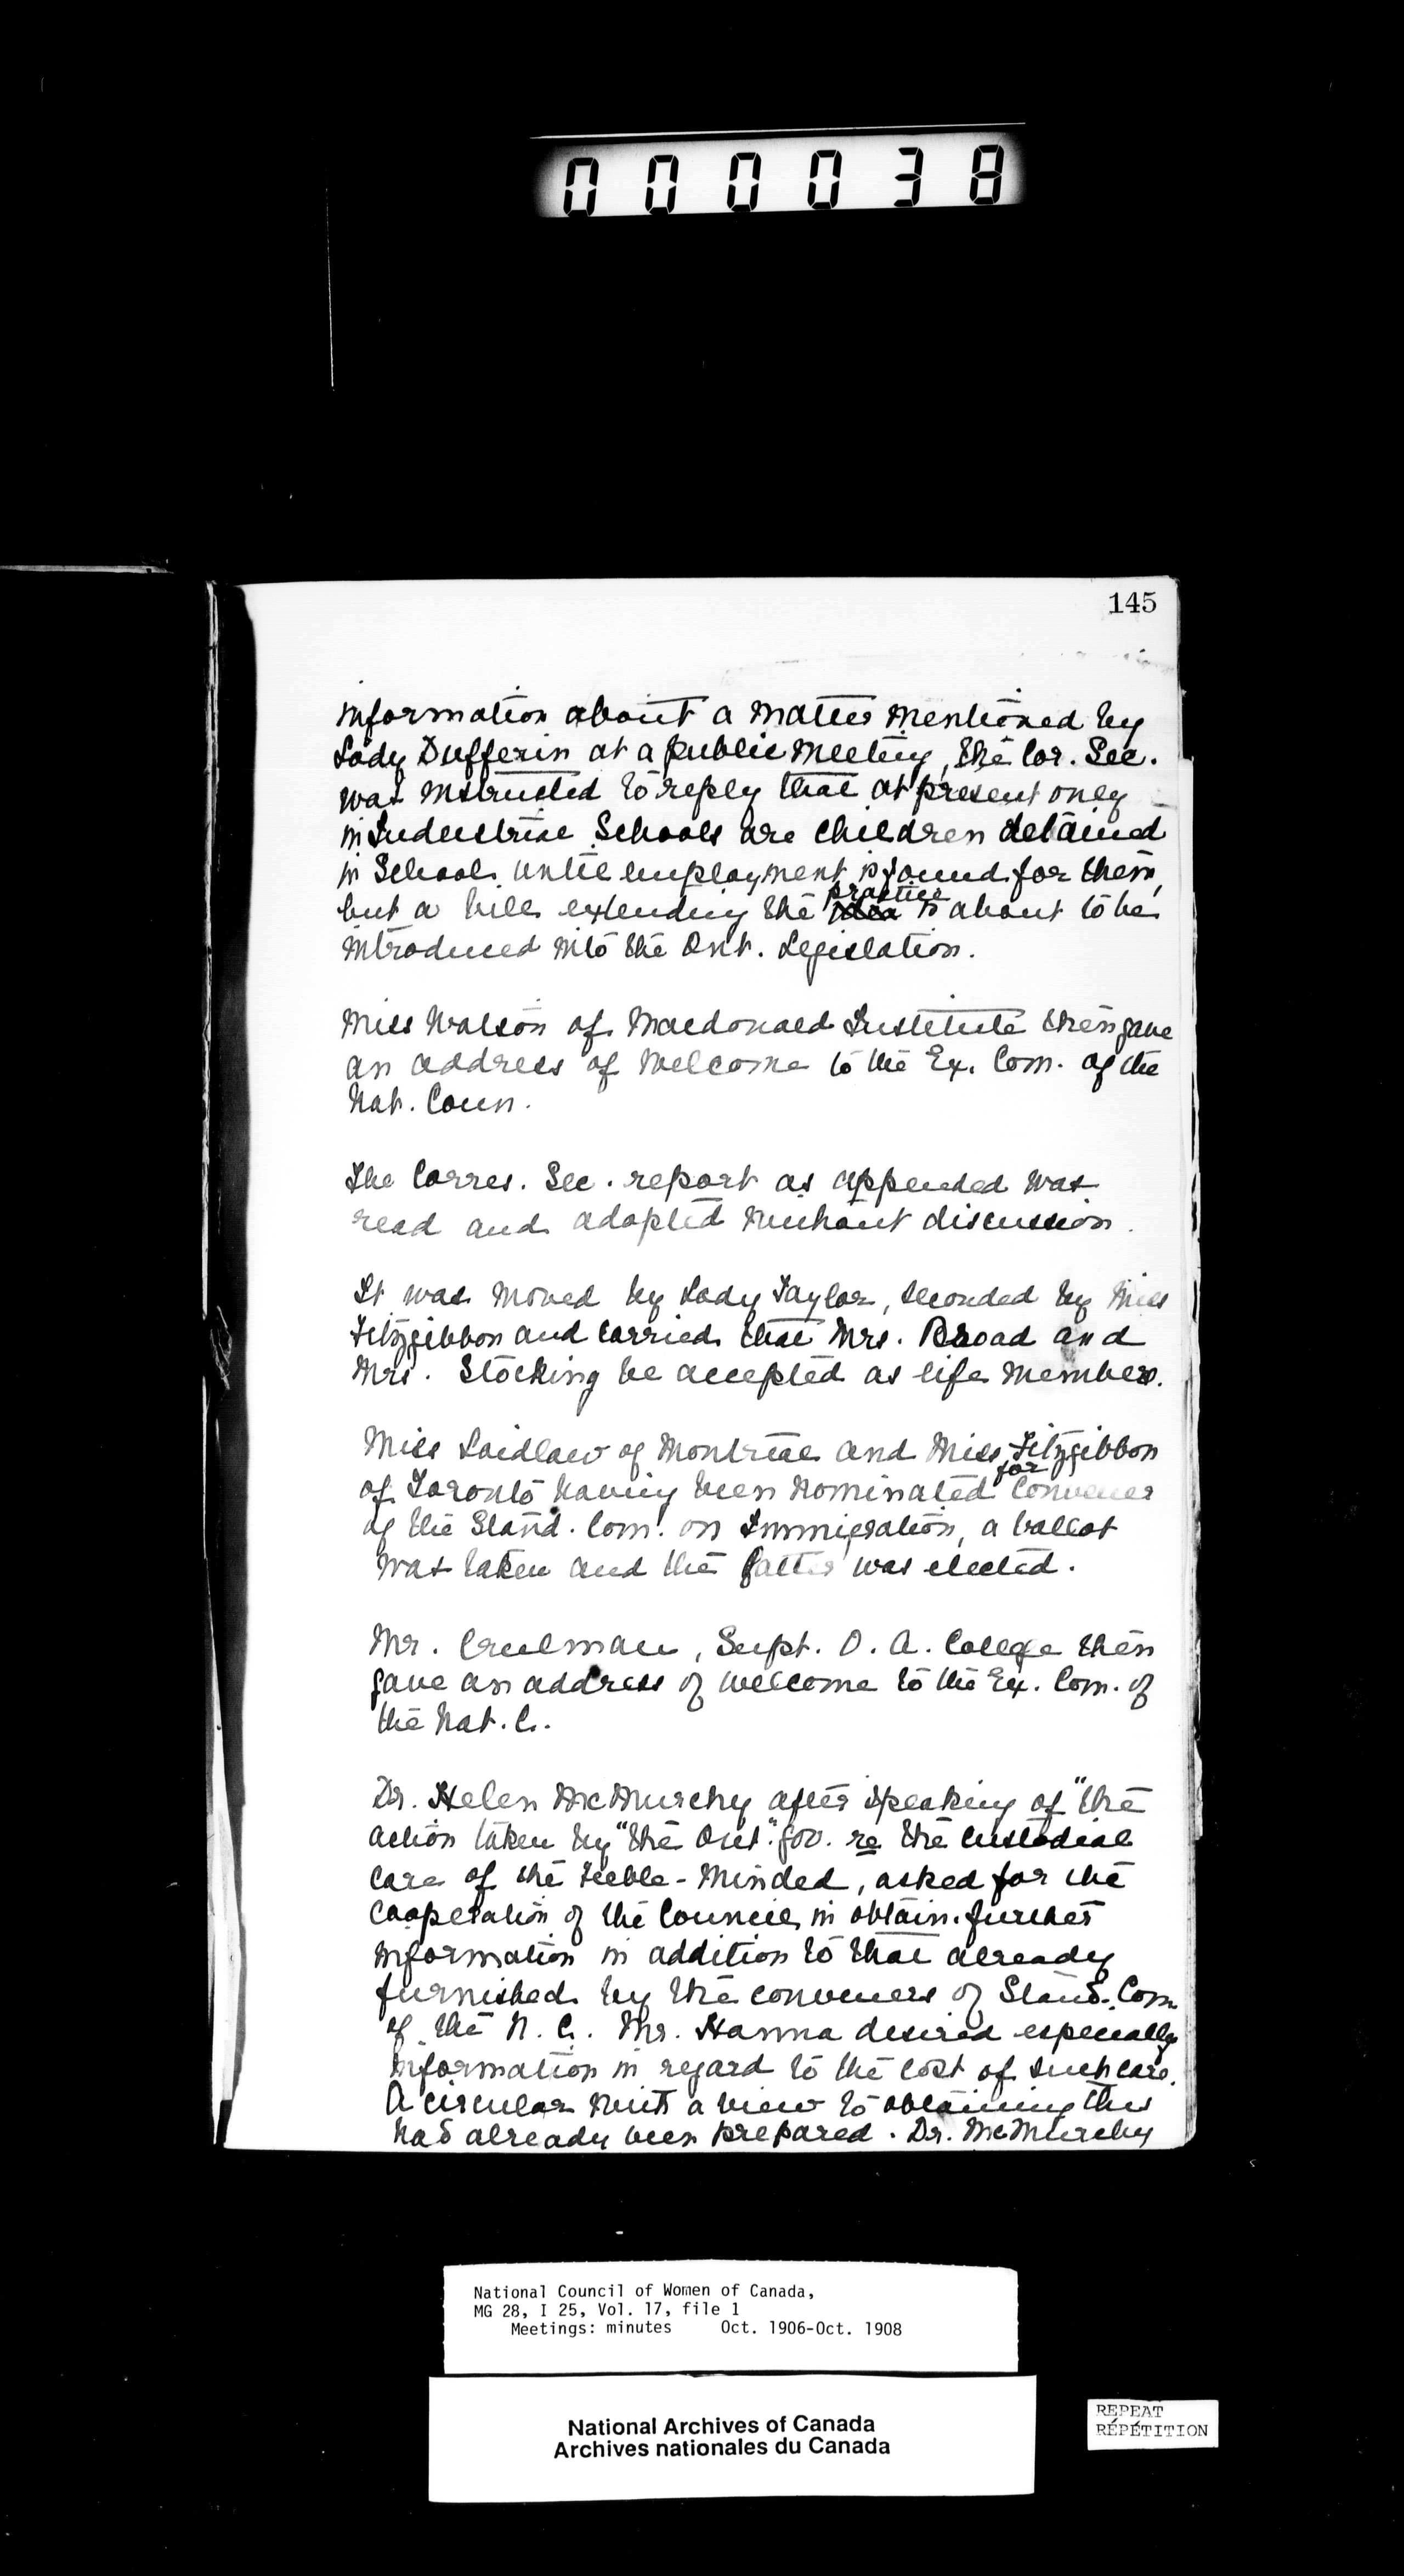 000038
145
information about a matter mentioned by
Lady Dufferin at a public meeting, the Cor. Sec.
was instructed to reply that at present only
in Industrial Schools are children detained
in School until employment is found for them,
practice
but a bill extending the idea is about to be
introduced into the Ont. Legislation.
Miss Watson of Macdonald Institute then gave
an address of welcome to the Ex. Com. of the
Nat. Coun.
The Corres. Sec. report as appended was
read and adopted without discussion.
It was moved by Lady Taylor, seconded by Miss
Fitzgibbon and carried that Mrs. Broad and
Mrs. Stocking be accepted as life members.
Miss Laidlaw of Montreal and Miss Fitzgibbon
for
of Toronto having been nominated Convener
of the Stand. Com. on Immigration, a ballot
was taken and the latter was elected.
Mr. Creelman, Supt. O. A. College then
gave an address of welcome to the Ex. Com. of
the Nat. C.
Dr. Helen McMurchy after speaking of "the
action taken by "the Ont." Gov. re the custodial
care of the Feeble-Minded, asked for the
cooperation of the Council in obtain. further
information in addition to that already
furnished by the conveners of Stand. Com.
of the N. C. Mr. Hanna desired especially
information in regard to the cost of such care.
A circular with a view to obtaining this
had already been prepared. Dr. McMurchy
National Council of Women of Canada,
MG 28, I 25, Vol. 17, file 1
Meetings: minutes Oct. 1906-Oct. 1908
National Archives of Canada
Archives nationales du Canada
REPEAT
RÉPÉTITION